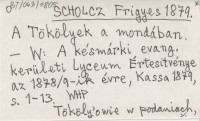 SCHOLCZ Frigyes 1879.
A Tökölyek a mondában.
— W: A késmárki evang.
kerületi Lyceum Értesítvénye
az 1878/9-ik évre, Kassa 1879,
s. 1-13. WHP
Tököly'owie w podaniach,